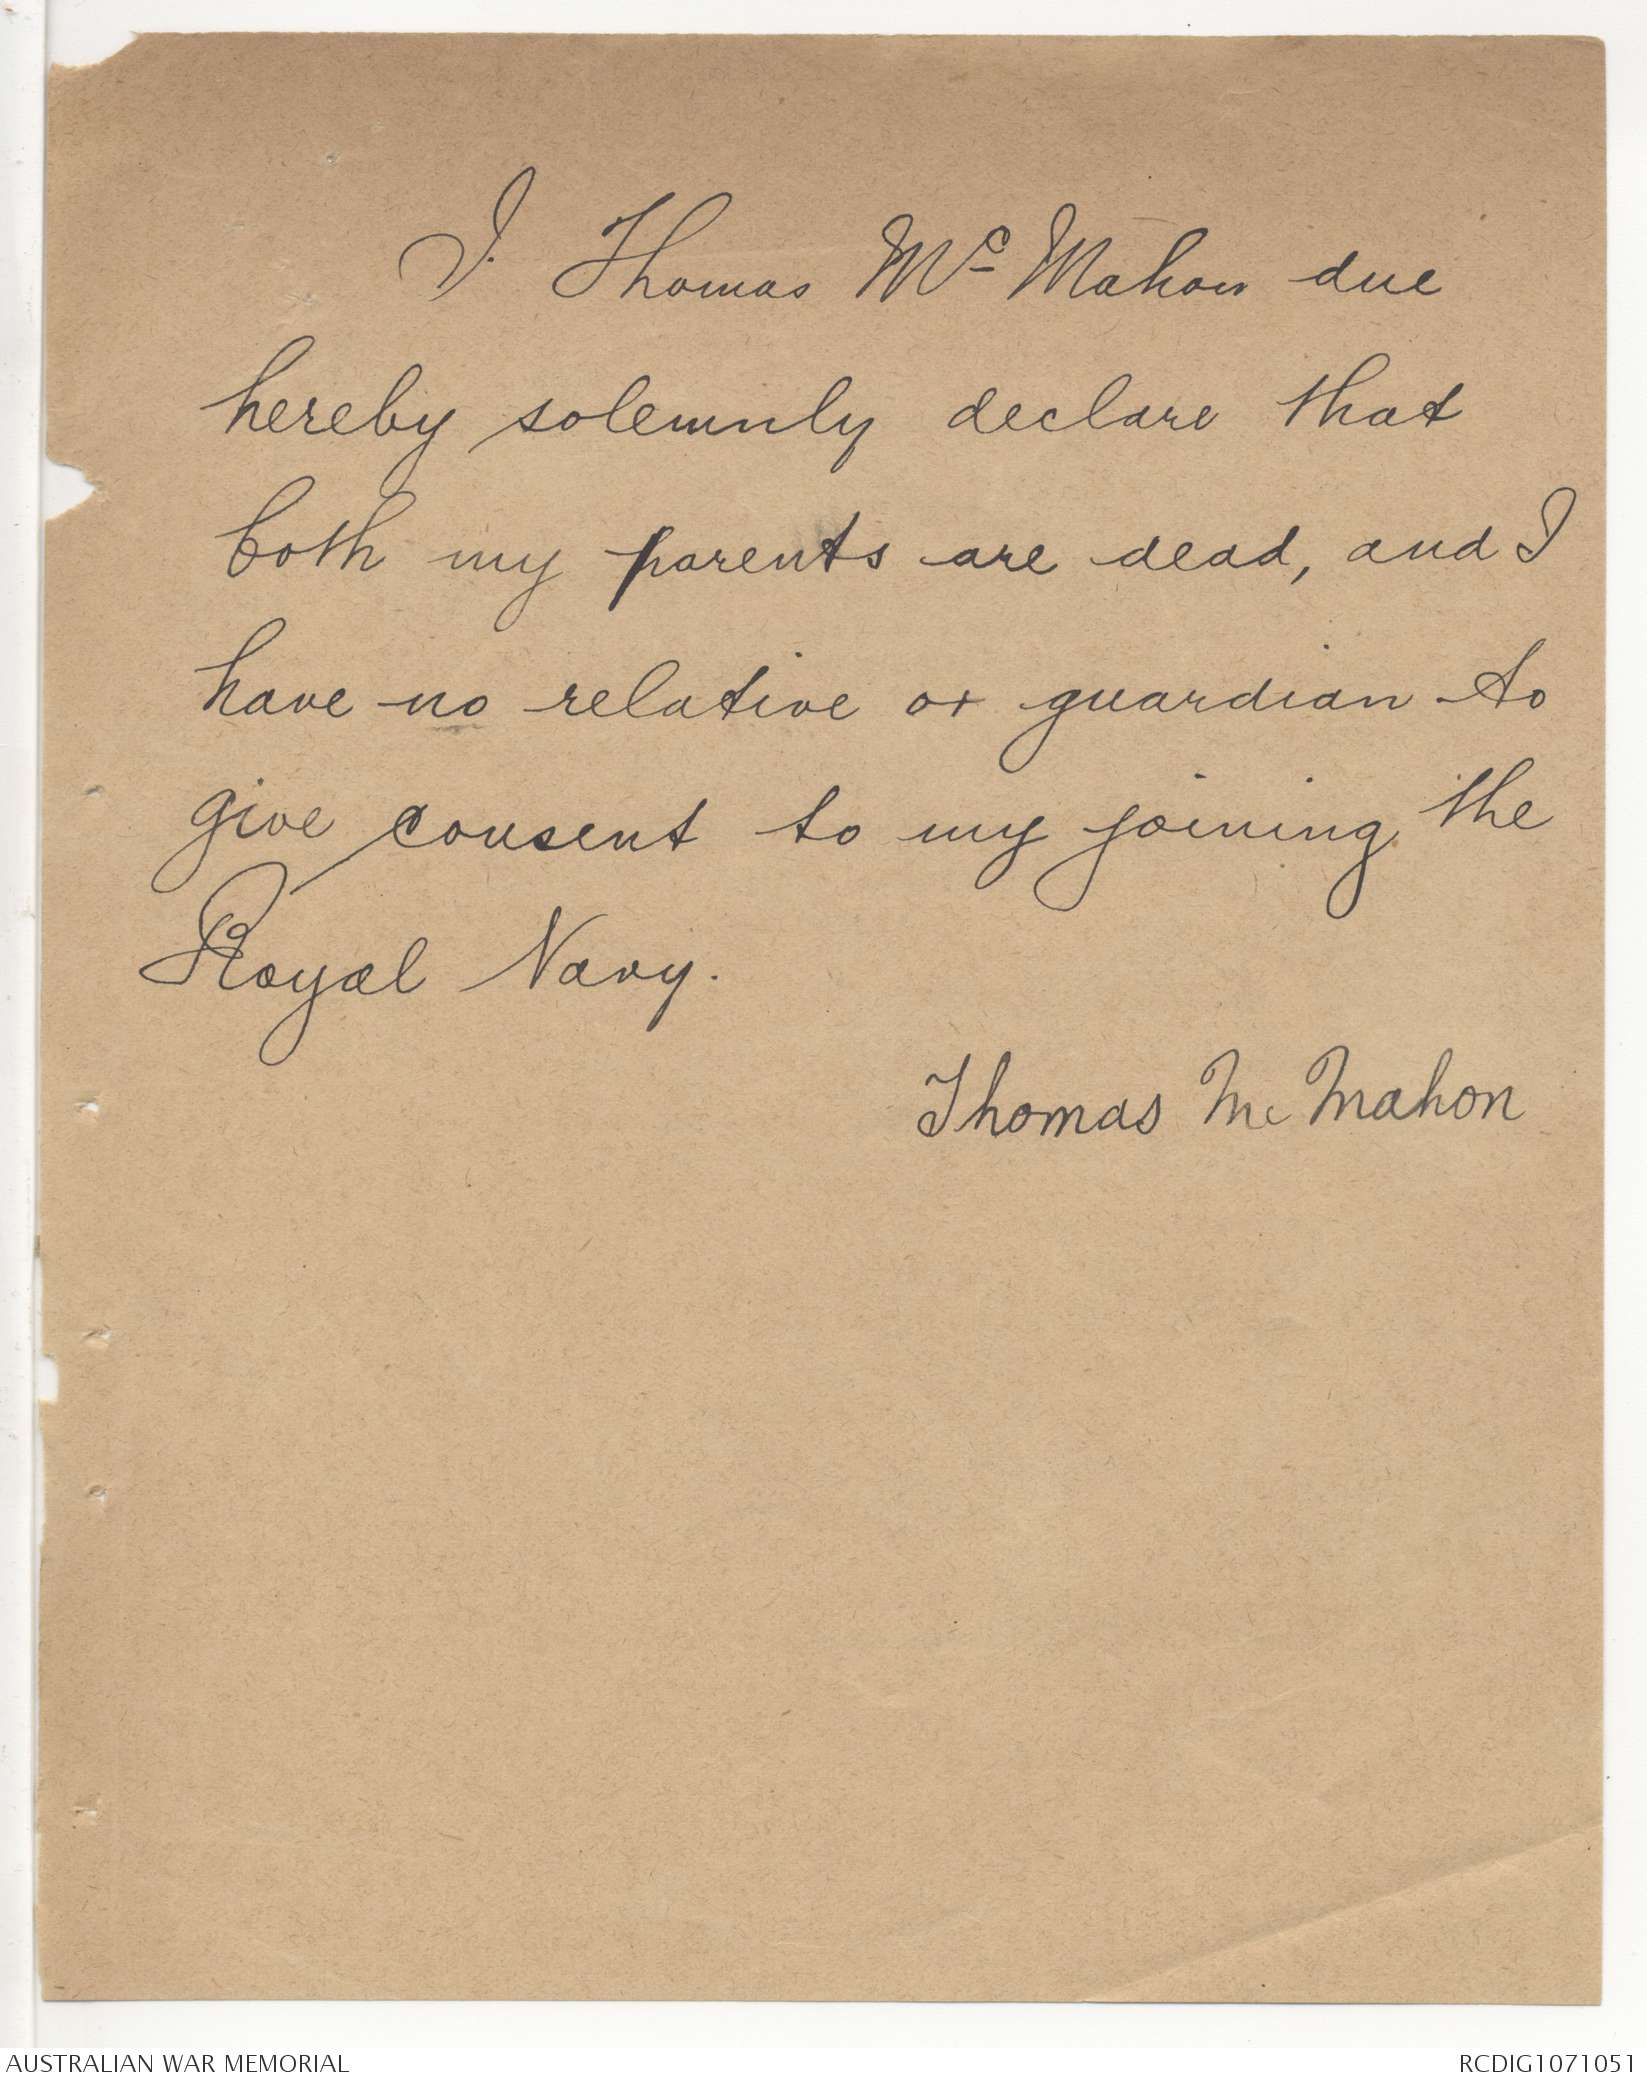 I. Thomas Mc Mahon due
hereby solemnly declare that
both my parents are dead, and I
have no relative or guardian to
give consent to my joining the
Royal Navy.
Thomas Mc Mahon
AUSTRALIAN WAR MEMORIAL
RCDIG1071051